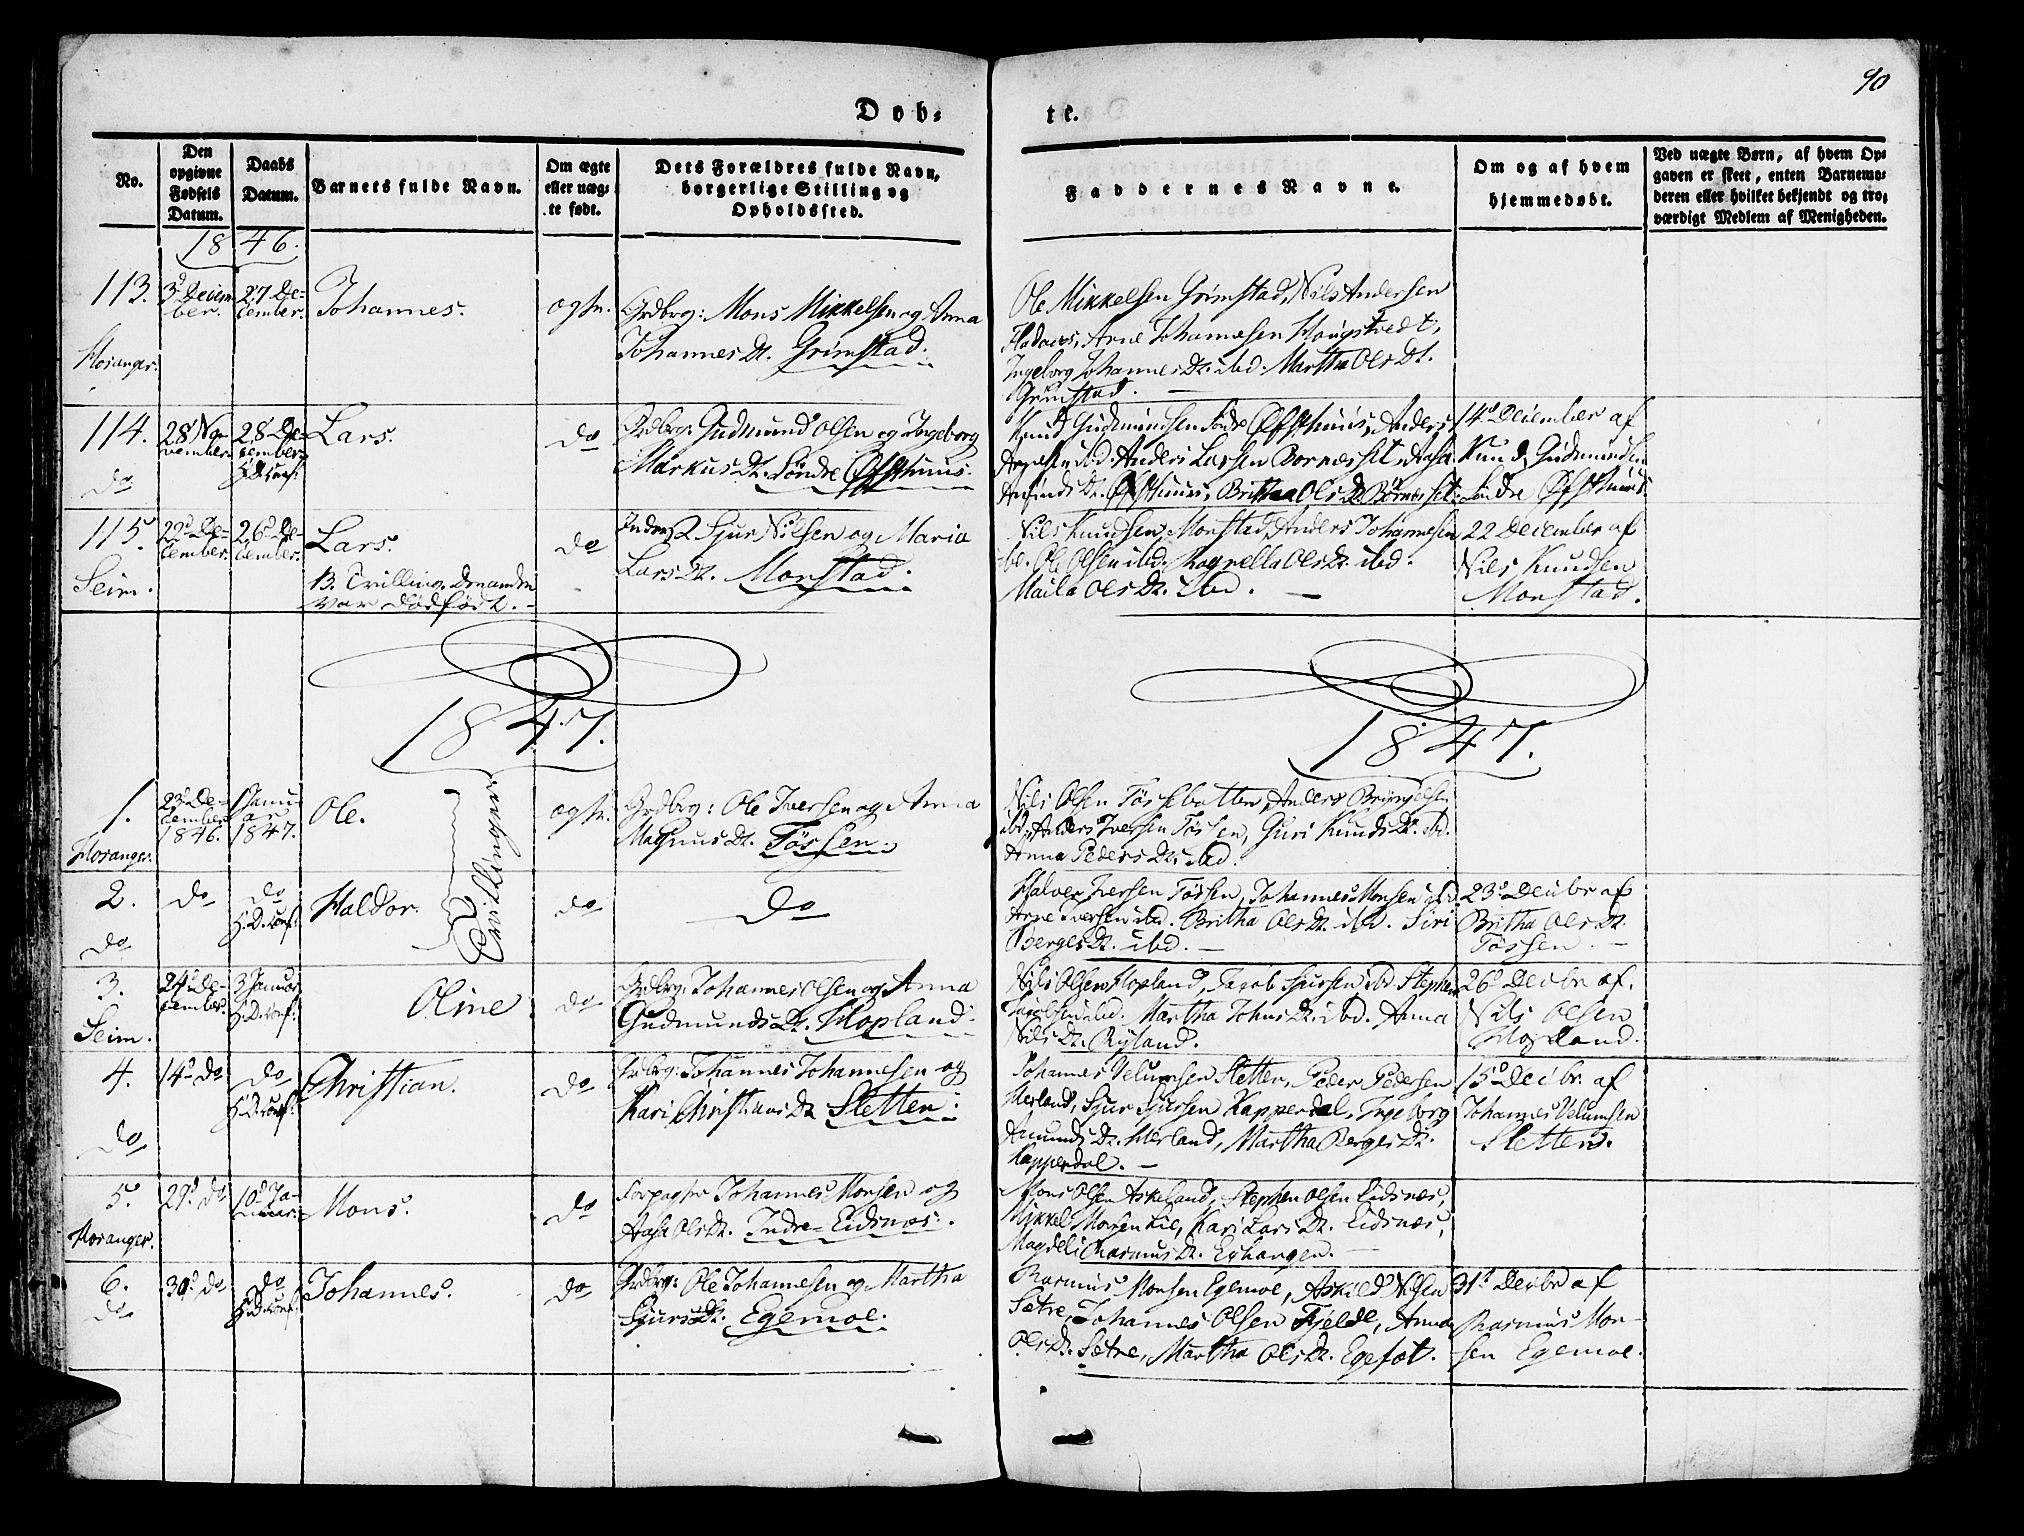 90
Døb-
te.
No.
Den opgivne Fødsels Datum.
Daabs Datum.
Barnets fulde Navn.
Om ægte eller uæg- te født.
Dets Forældres fulde Navn, borgerlige Stilling og Opholdssted.
Faddernes Navne.
Om og af hvem hjemmedøbt.
Ved uægte Børn, af hvem Op- gaven er skeet, enten Barnemo- deren eller hvilket bekjendt og tro- værdigt Medlem af Menigheden.
1846.
113.
Hosanger.
3d Decem-
ber.
27 De-
cember.
Johannes.
ægte.
Grdbrg: Mons Mikkelsen og Anna
Johannes Dt. Grimstad.
Ole Mikkelsen Grimstad, Nils Andersen
Arne Johannesen Hougstvedt,
Ingeborg Johannes Dt. ibd. Martha Ols Dt.
Grimstad.
114.
do
28 No-
vember
28 De-
cember
Lars.
do
Grdbrg: Gudmund Olsen og Ingeborg
Markus Dt. Søndre Øfsthuus.
Knud Gudmundsen Søndre Øfsthuus, Anders
ibd. Anders Larsen Bornæsset, Aasa
Dt. Øfsthuus, Britha Ols Dt Børnesset.
14d December af
Knud Gudmundsen
Søndre Øfsthuus.
115.
Seim.
22d De-
cember.
26d De-
cember.
Lars.
B. Tvilling. Den anden
var dødfødt.
do
Sjur Nilsen og Maria
Lars Dt. Monstad.
Nils Knudsen Monstad, Anders Johannesen
ibd. Ole Olsen ibd. Ragnella Ols Dt. ibd.
Maila Ols Dt. ibd.
22 December af
Nils Knudsen
Monstad.
1847.
1847.
1.
Hosanger.
23d De-
cember
1846.
1 Janu-
ar
1847.
Ole.
Tvillinger
ægte.
Grdbrg: Ole Iversen og Anna
Magnus Dt. Tøssen.
Nils Olsen Tøssebotten, Anders Brynjelsen
ibd., Anders Iversen Tøssen, Guri Knuds Dt. ibd.
Anna Peders Dt. ibd.
2.
do
do
do
H.D. conf.
Haldor.
do
do
Halver Iversen Tøssen, Johannes Monsen ibd.
Arne Iversen ibd. Britha Ols Dt. ibd. Siri
Berges Dt. ibd.
23d Decbr af
Britha Ols Dt.
Tøssen.
3.
Seim.
24d De-
cember.
3 Januar
H.D. conf.
Oline
do
Grdbrg: Johannes Olsen og Anna
Gudmunds Dt. Hopland.
Nils Olsen Hopland, Jacob Sjursen ibd Stephen
Jacobsen ibd. Martha Johns Dt. ibd. Anna
Nils Dt. Ryland.
26d Decbr af.
Nils Olsen
Hopland.
4.
do
14d do
do
H.D. conf.
Christian.
do
Grdbrg: Johannes Johannesen og
Kari Christians Dt Sletten.
Johannes Velumsen Sletten, Peder Pedersen
Sjur Sjursen Kapperdal, Ingeborg
Amunds Dt. Martha Berges Dt.
Kapperdal.
15d Decbr. af
Johannes Velumsen
Sletten.
5.
Hosanger.
29d do
10d Ja-
nuar.
Mons.
do
Forpagter Johannes Monsen og
Aasa Ols Dt. Indre-Eidsnæs.
Mons Olsen Askeland, Stephen Olsen Eidsnæs,
Mikkel Monsen Lie, Kari Lars Dt. Eidsnæs,
Magdeli Rasmus Dt. Erhangen.
6.
do
30d do
do
H.D. conf.
Johannes.
do
Grdbrg: Ole Johannesen og Martha
Sjurs Dt. Egemoe.
Rasmus Monsen Egemoe, Askild Nilsen
Sætre, Johannes Olsen Fjelde, Anna
Ols Dt. Sætre, Martha Ols Dt. Egefæt.
31d Decbr af
Rasmus Mon-
sen Egemoe.